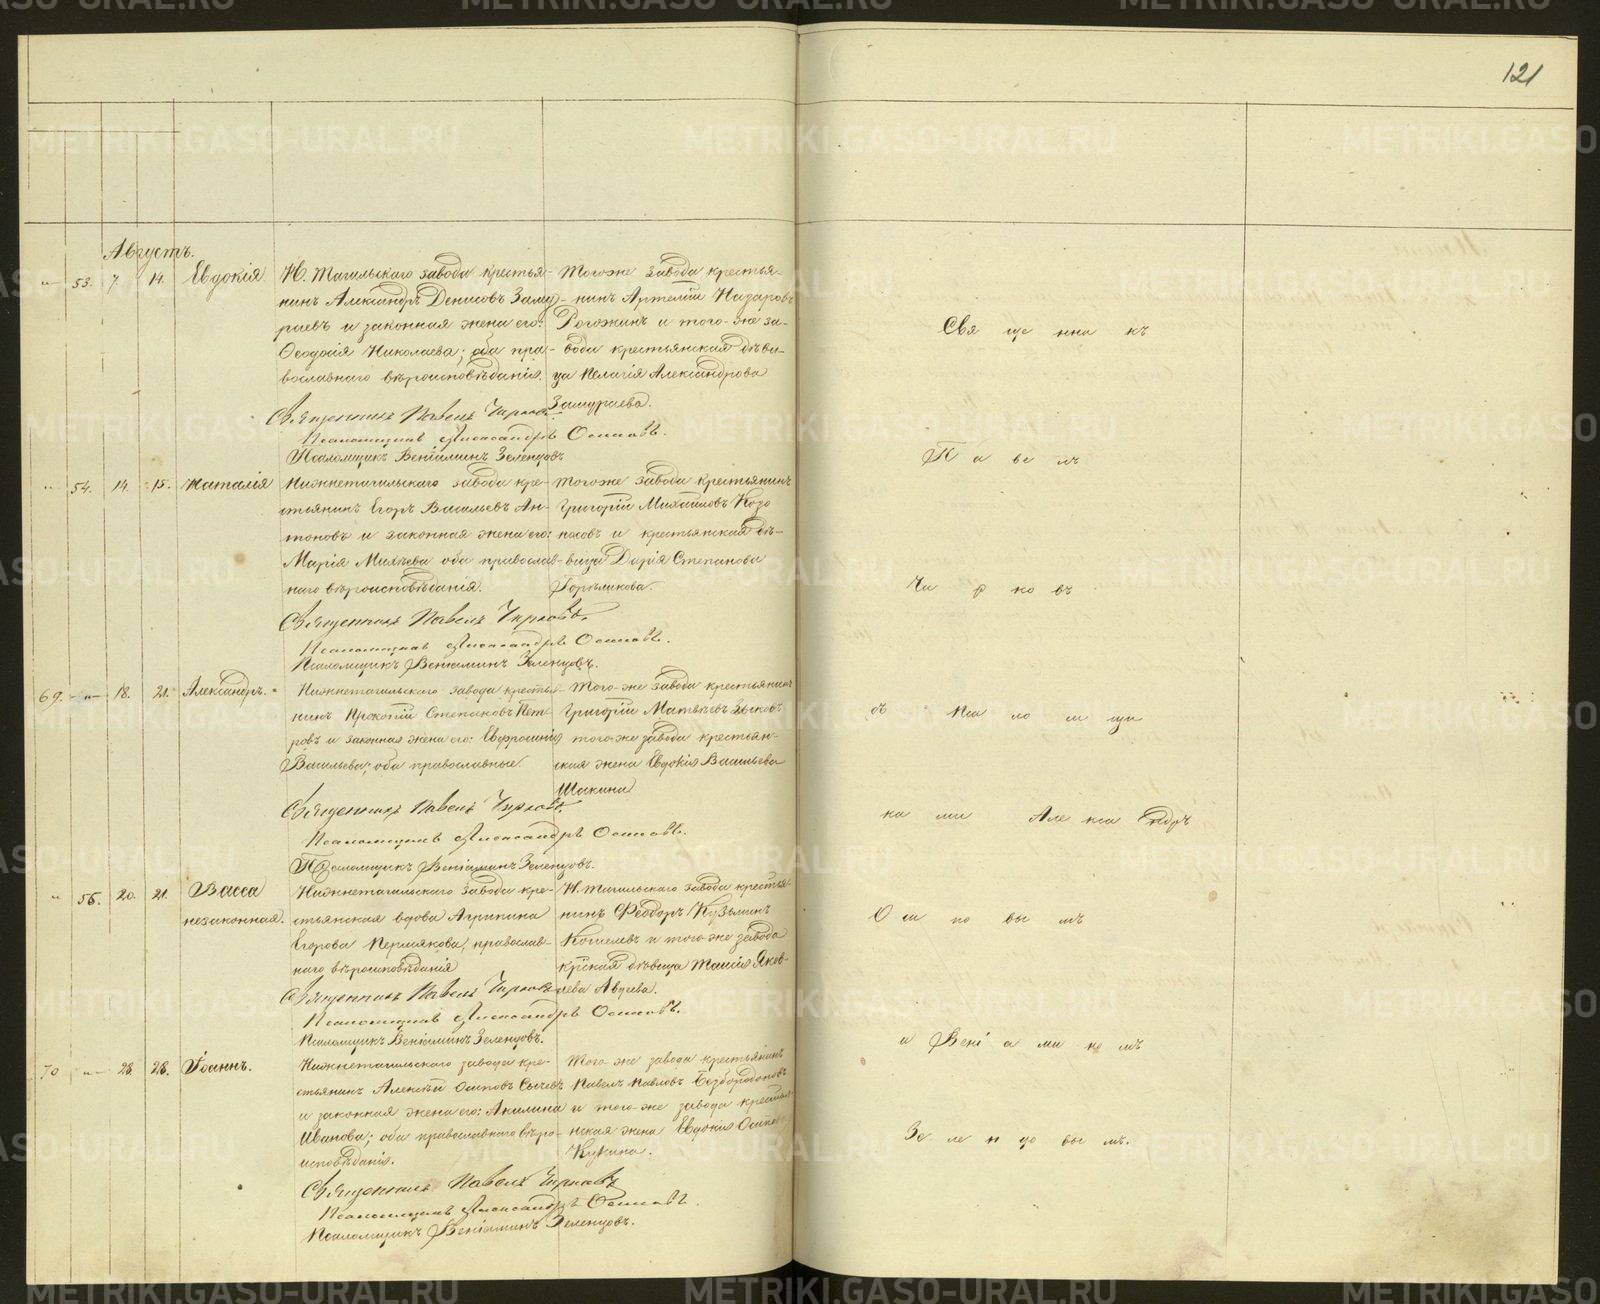 121
Августъ.
" 53. 7. 14. Евдокія
Н. Тагильскаго завода крестья-
нинъ Александръ Денисовъ Заму-
раевъ и законная жена его:
Ѳеодосія Николаева; оба пра-
вославнаго вѣроисповѣданія.
Тогоже завода крестья-
нинъ Артемій Назаровъ
Рогожинъ и того-же за-
вода крестьянская дѣви-
ца Пелагія Александрова
Замураева.
Священникъ Павелъ Чирковъ
Псаломщикъ Александръ Осиповъ.
Псаломщикъ Веніаминъ Зеленцовъ
" 54. 14. 15. Наталія
Нижнетагильскаго завода кре-
стьянинъ Егоръ Васильевъ Ан-
тоновъ и законная жена его:
Марія Михѣева оба православ-
наго вѣроисповѣданія.
Тогоже завода крестьянинъ
Григорій Михайловъ Козо
пасовъ и крестьянская дѣ-
вица Дарія Степанова
Священникъ Павелъ Чирковъ.
Псаломщикъ Александръ Осиповъ.
Псаломщикъ Веніаминъ Зеленцовъ.
69. " 18. 21. Александръ.
Нижнетагильскаго завода крестья-
нинъ Прокопій Степановъ Пет-
ровъ и законная жена его: Евфросинія
Васильева; оба православные.
Того-же завода крестьянинъ
Григорій Матвѣевъ Зыковъ
того-же завода крестьян-
ская жена Евдокія Васильева
Шакина
Священникъ Павелъ Чирковъ.
Псаломщикъ Александръ Осиповъ.
Псаломщикъ Веніаминъ Зеленцовъ.
" 55. 20. 21. Васса
незаконная.
Нижнетагильскаго завода кре-
стьянская вдова Агрипина
Егорова Пермякова, православ-
наго вѣроисповѣданія
Н. Тагильскаго завода крестья-
нинъ Ѳеодоръ Кузьминъ
Кошелевъ и того-же завода
дѣвица Таисія Яков-
лева Авдеева.
Священникъ Павелъ Чирковъ
Псаломщикъ Александръ Осиповъ.
Псаломщикъ Веніаминъ Зеленцовъ.
70 " 28. 28. Іоаннъ.
Нижнетагильскаго завода кре-
стьянинъ Алексѣй Осиповъ Сычевъ
и законная жена его: Акилина
Иванова; оба православнаго вѣро-
исповѣданія.
Того-же завода крестьянинъ
Павелъ Павловъ Безбородовъ
и того-же завода крестья-
нская жена Евдокія Осипо
Кукина.
Священникъ Павелъ Чирковъ
Псаломщикъ Александръ Осиповъ.
Псаломщикъ Веніаминъ Зеленцовъ.
Свя ще нни къ
П а ве лъ
Чи р ко въ
съ Пса ло м щи
ка ми Але кса ндръ
О си по вы мъ
и Вені а ми но мъ
Зе ле н цо вы мъ.
METRIKI.GASO-URAL.RU